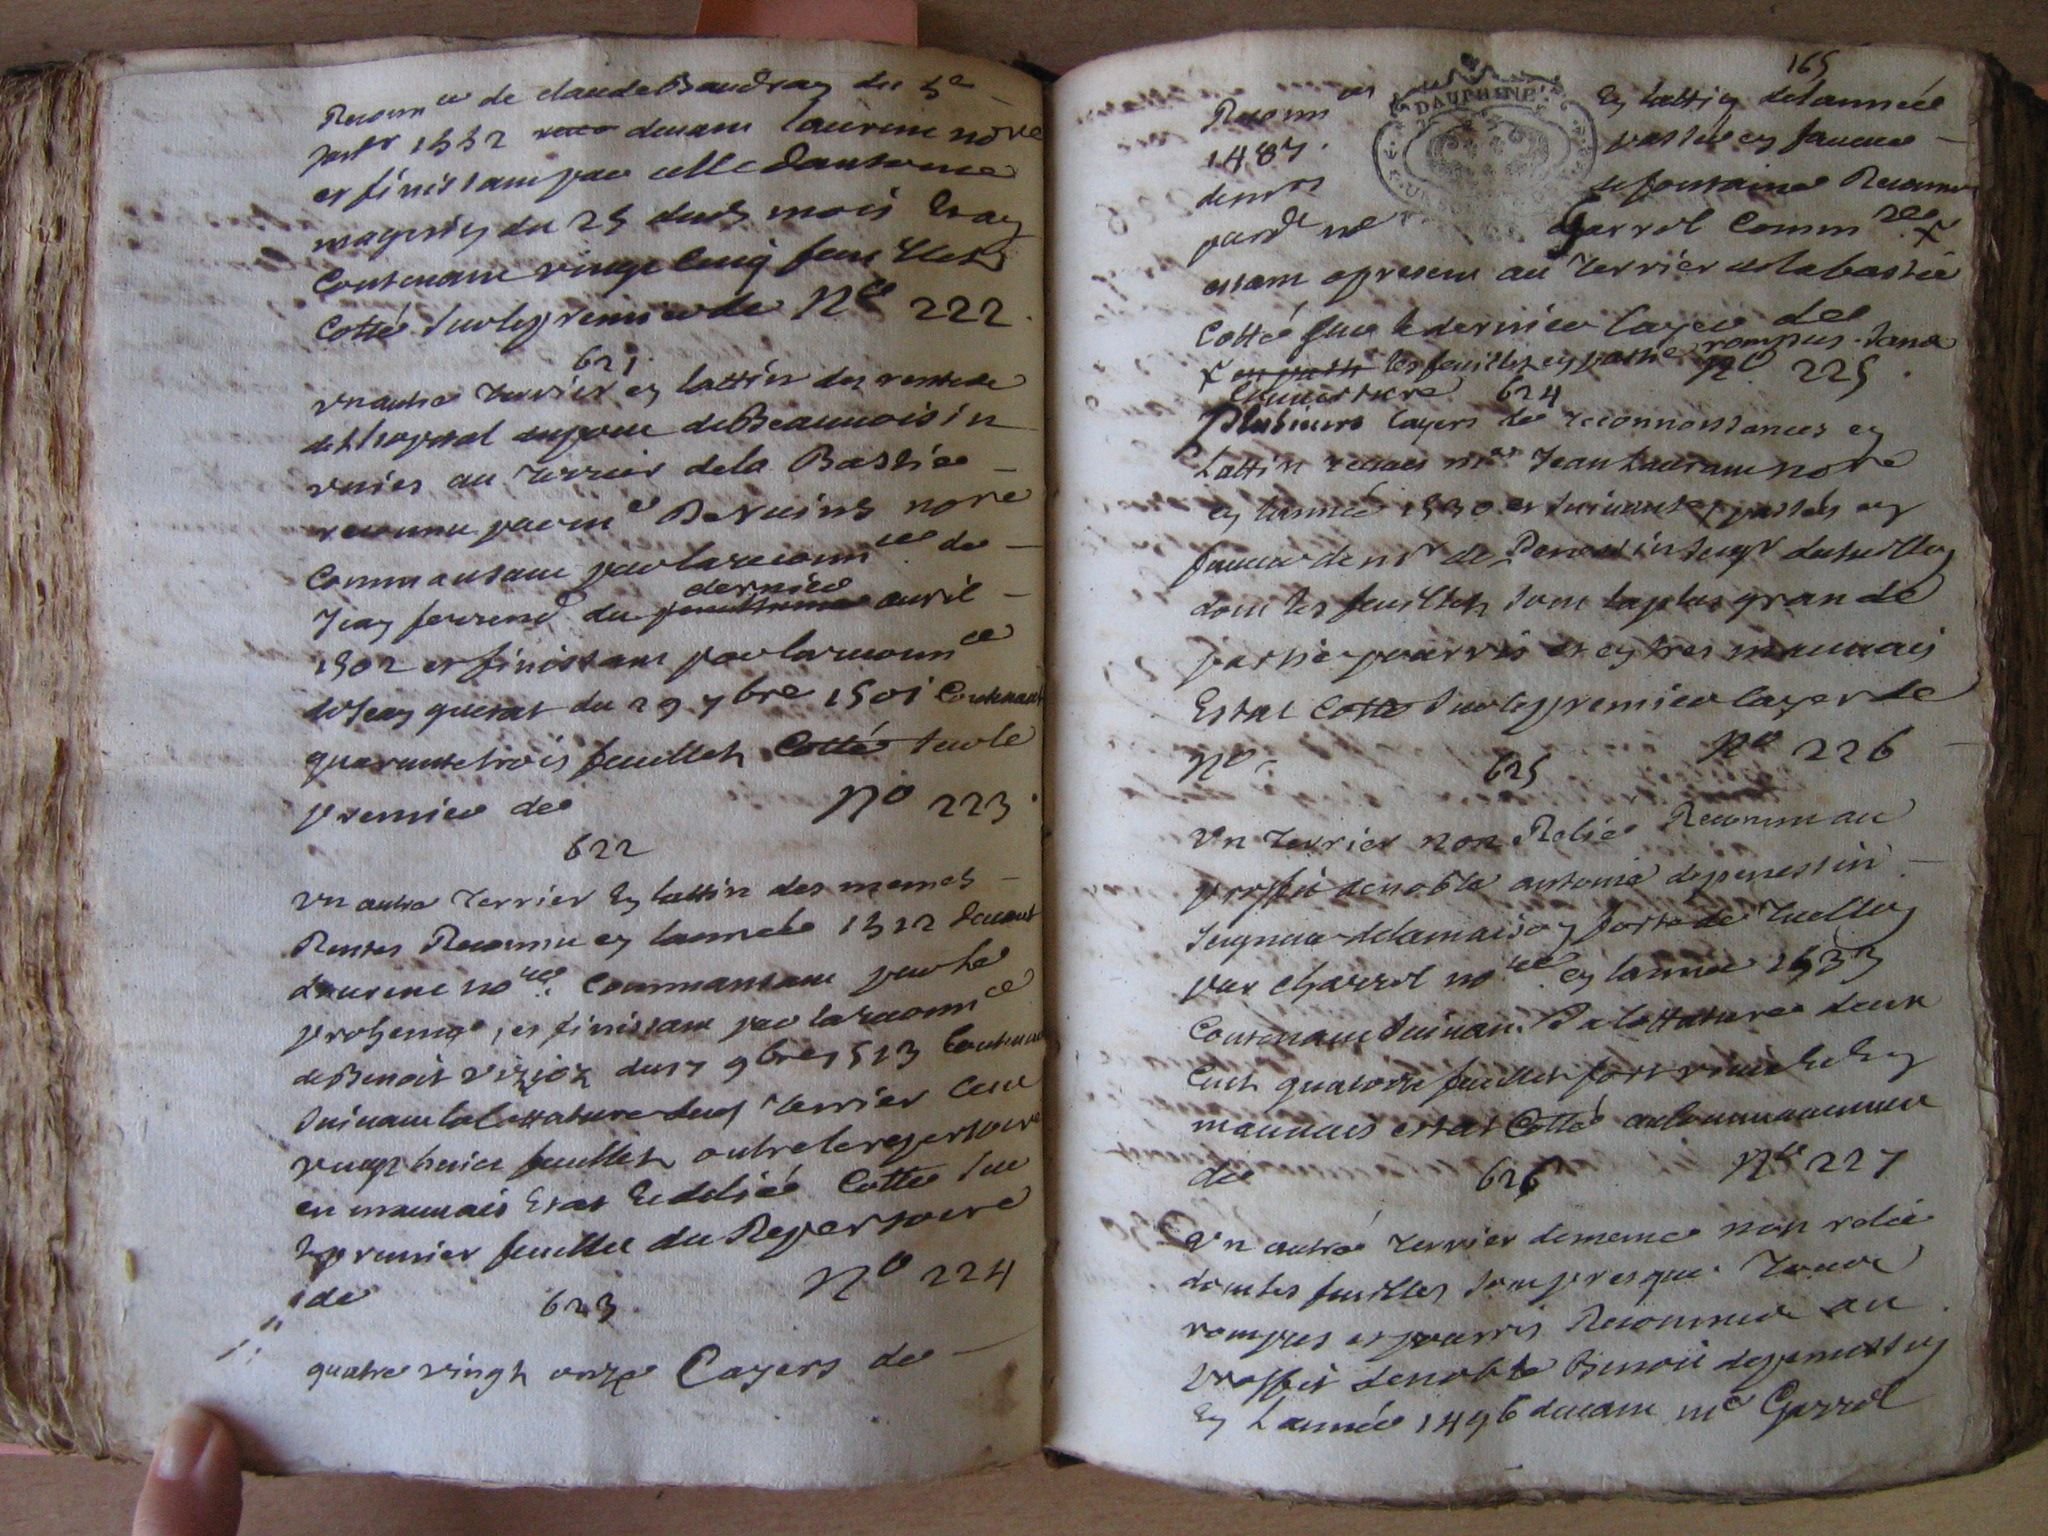 Reconn ce de claude Baudray du 5e
1532 devant laurens nore
et finissant par celle dantoine
du 25 dud mois Et an
Contenant vingt Cinq feuillets
Cotté sur le premier de No 222.
621.
vn autre terrier en lattin des rentes de
de Beauuoisin
vnies au terrier de la Bastie
reconnu par me nore
Commansant par la reconn ce de
dernier
Jean du avril
1502 et finissant par la reconn ce
de Jean du 29 7bre 1501 Contenant
quarante trois feuillets Cotté sur le
premier de No 223.
622
vn autre terrier En lattin des memes
Rentes Reconnu en lannée 1512 devant
laurens nore. Commansant par le
proheme, et finissant par la reconn ce
de Benoit du 7 9bre 1513 Contenant
suivant la cottature dud terrier Cent
vingt huict feuillets outre le repertoire
en mauuais Estat Et delié Cotté sur
le premier feuillet du Repertoire
de No 224
623.
quatre vingt onze Cayers de
165
DAUPHINE
Reconn ces En lattin de lannée
1487. passés en faueur
de mrs de fontaine Reconnu
par d me Garrel Comm re X
estant a present au terrier de la bastie
Cotté sur le dernier Cayer de
X les feuillets en partie rompus sans
Couuerture No 225.
624
Plusieurs Cayers de reconnoissances en
Lattin receues mre Jean Laurans nore
en lannée 1530 et suiuantes passés en
faueur de mr de seigr de tuellin
dont les feuillets sont la plus grande
partie pourris et en tres mauuais
Estat Cotté sur le premier Cayer de
No. No 226
625
vn terrier non Relié Reconnu au
proffit de noble antoine de penessin
seigneur de la maison forte de Tuellin
par Charrel nore en lannée 1533
Contenant suivant la Cottature deux
Cent quatorze feuillets fort
mauuais estat Cotté au Commancement
de No 227
626
vn autre terrier de meme non relié
dont les feuilles sont presque toutes
rompues et pourris Reconnu au
proffit de noble Benoit
En Lannée 1496 devant me Garrel